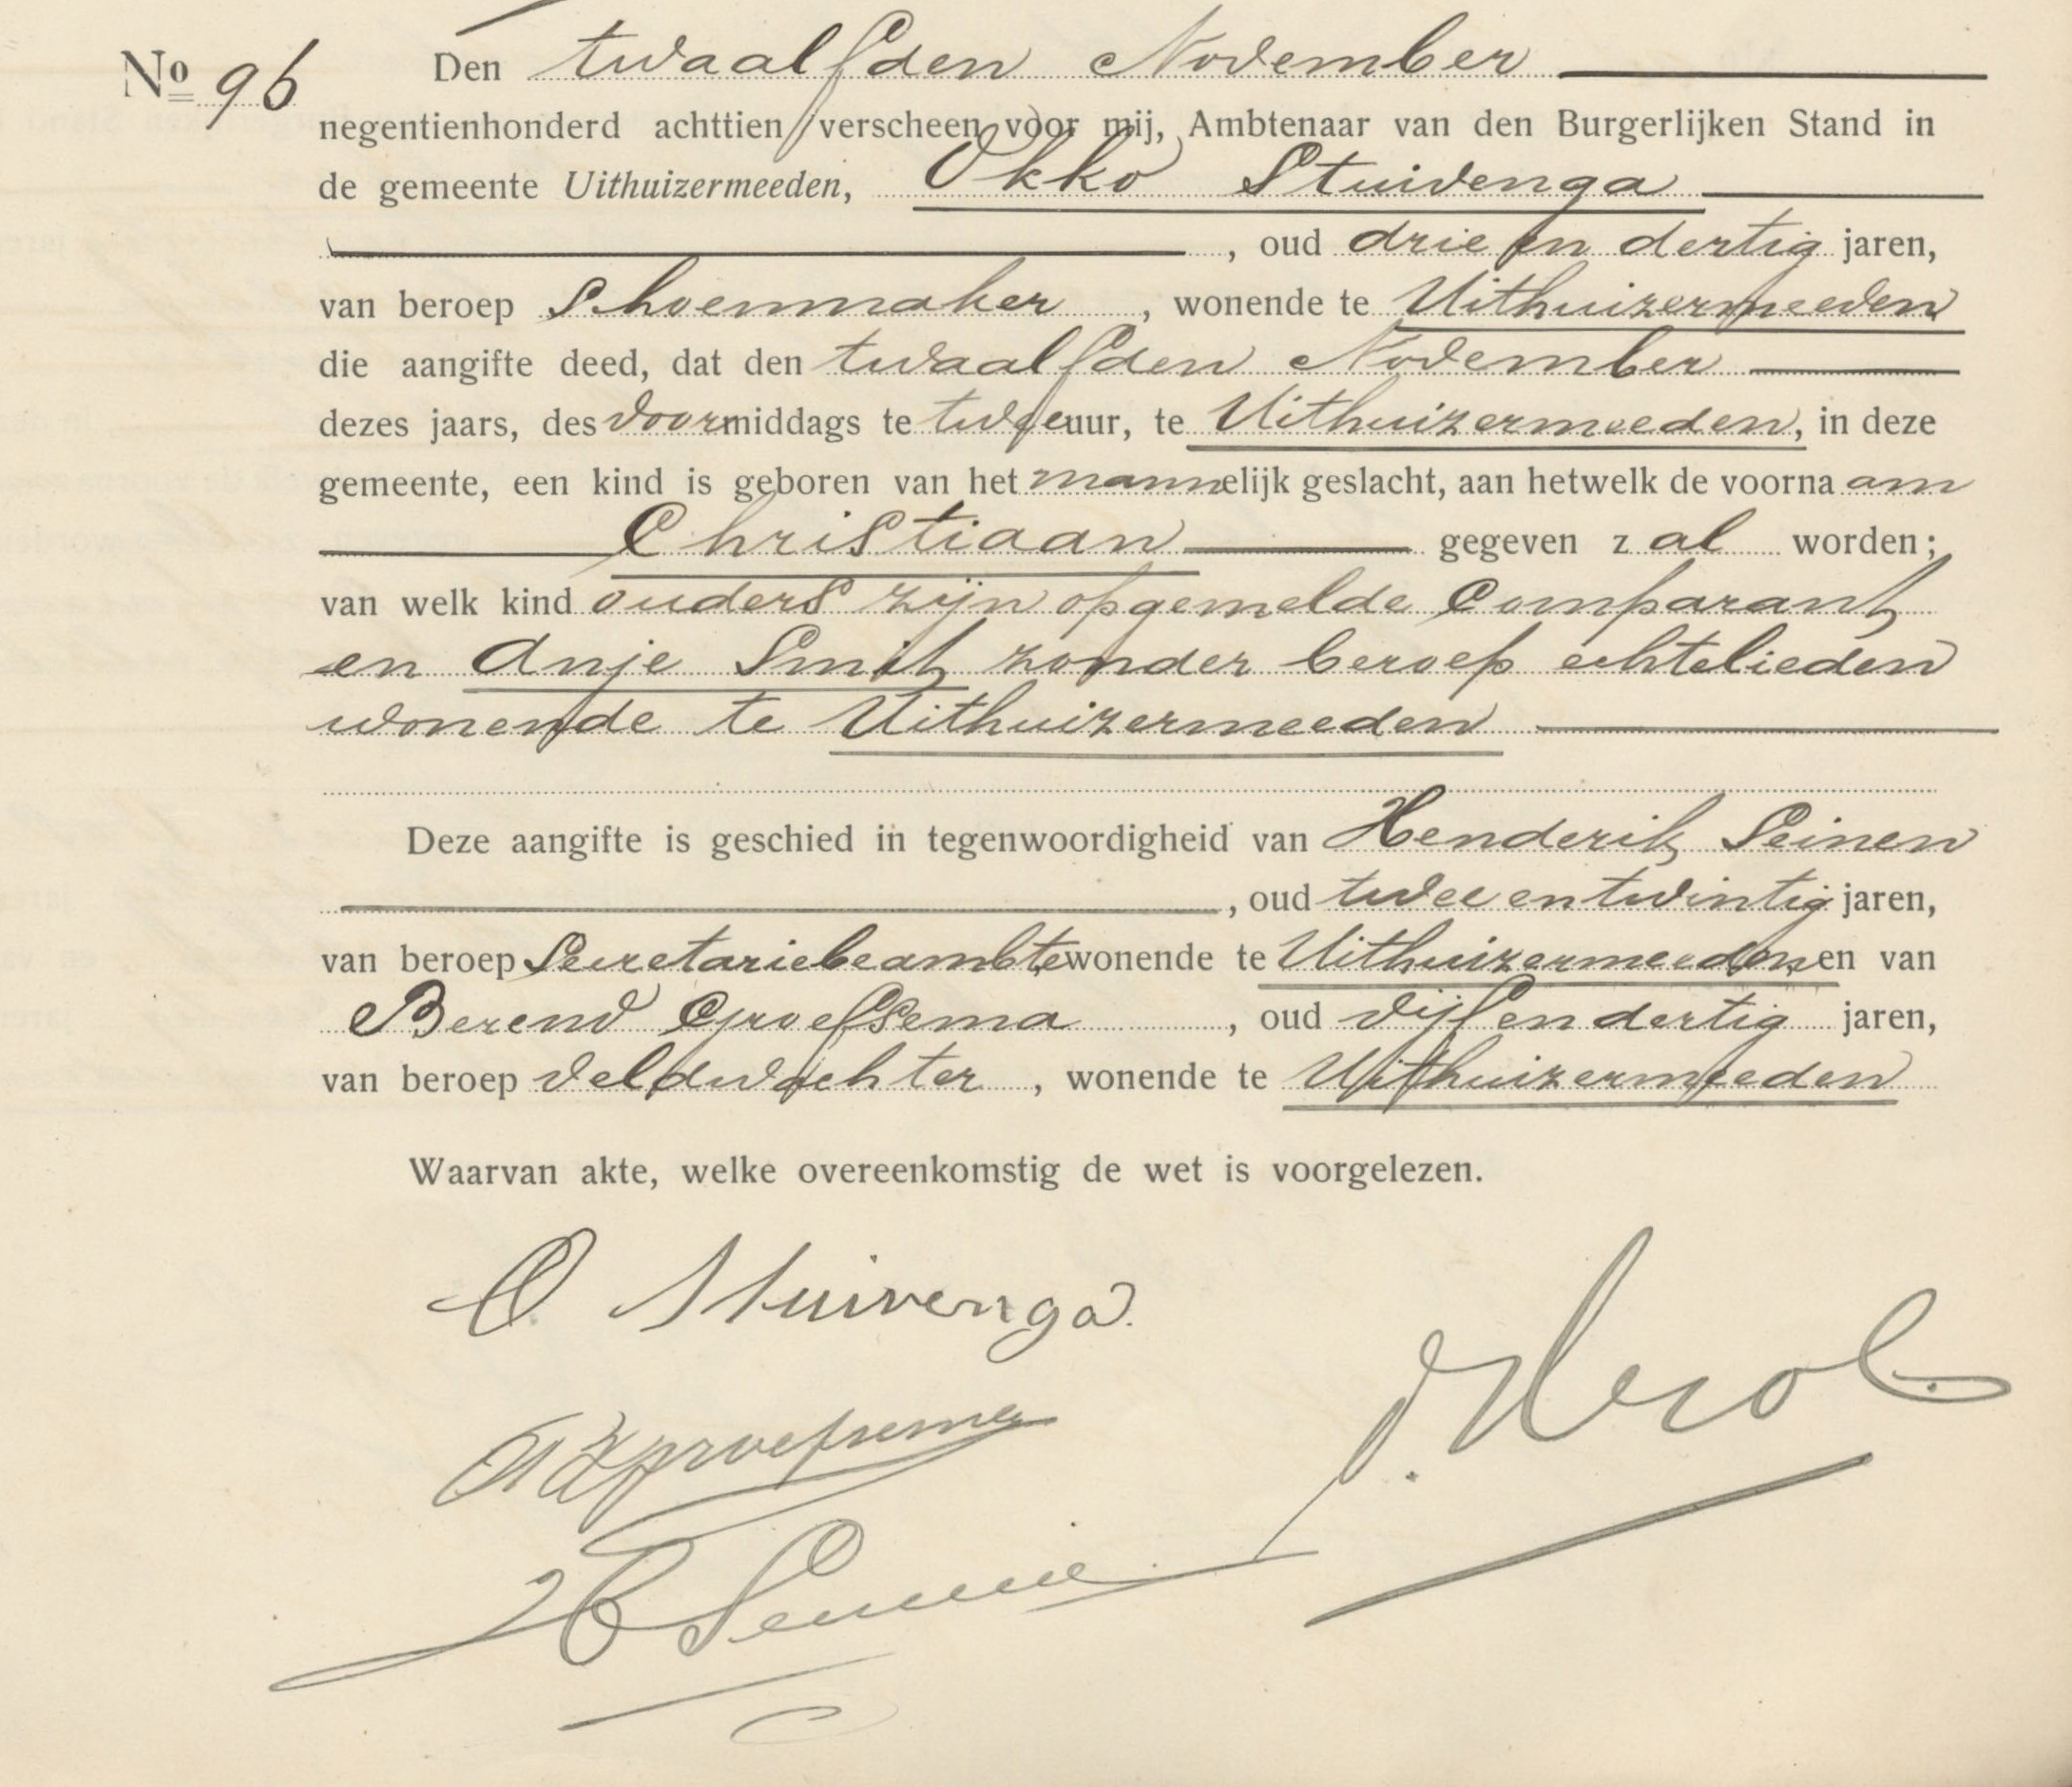 No 96 Den twaalfden November
negentienhonderd achttien verscheen voor mij, Ambtenaar van den Burgerlijken Stand in
de gemeente Uithuizermeeden, Okko Stuivenga
, oud drie en dertig jaren,
van beroep Schoenmaker, wonende te Uithuizermeeden
die aangifte deed, dat den twaalfden November
dezes jaars, des voormiddags te twee uur, te Uithuizermeeden, in deze
gemeente, een kind is geboren van het mannelijk geslacht, aan hetwelk de voornaam
Christiaan gegeven zal worden;
van welk kind ouders zijn opgemelde Comparant
en Anje Smit zonder beroep echtelieden
wonende te Uithuizermeeden
Deze aangifte is geschied in tegenwoordigheid van Henderik Seinen
, oud twee en twintig jaren,
van beroep Secretariebeambte wonende te Uithuizermeeden en van
Berend Groefsema, oud vijf en dertig jaren,
van beroep veldwachter, wonende te Uithuizermeeden
Waarvan akte, welke overeenkomstig de wet is voorgelezen.
O. Stuivenga.
Groefsema